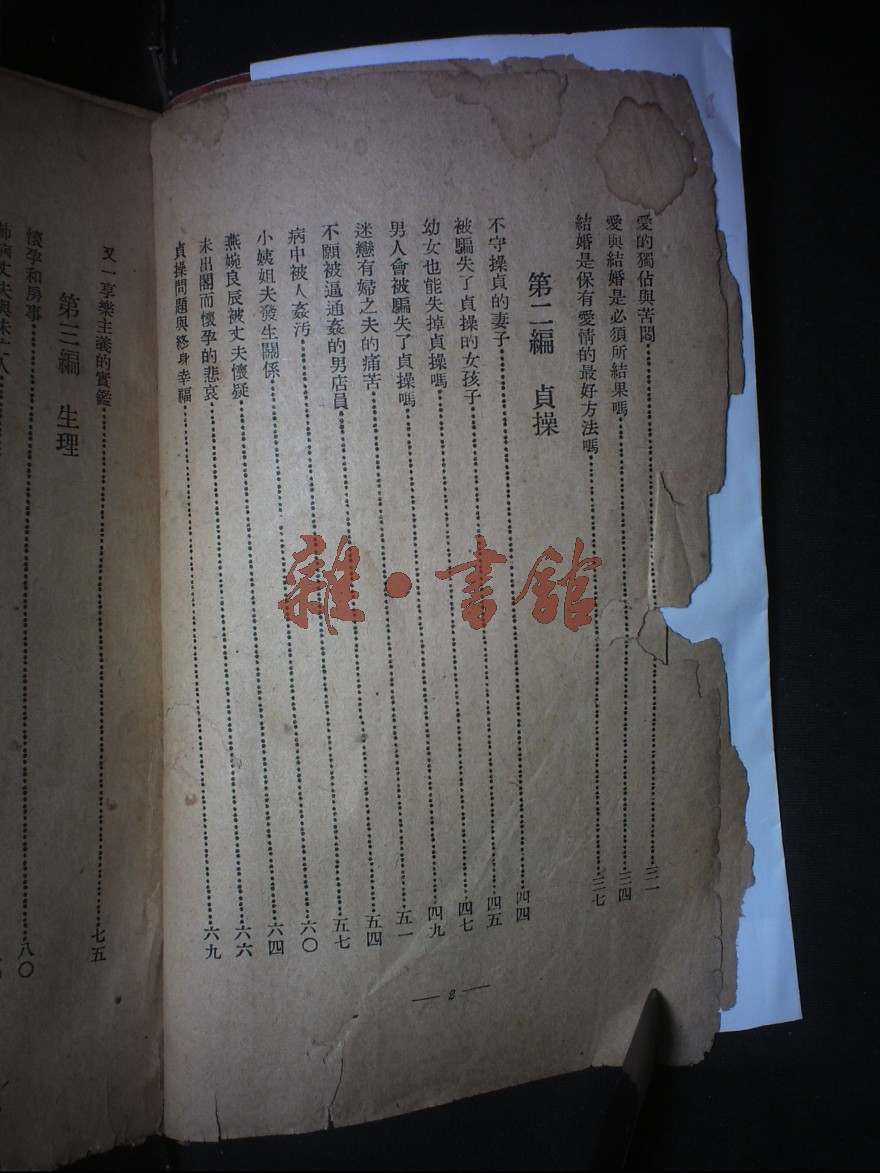 愛的獨佔與苦悶……三一
愛與結婚是必須所結果嗎……三四
結婚是保有愛情的最好方法嗎……三七
第二編 貞操
不守操貞的妻子……四四
被騙失了貞操的女孩子……四五
幼女也能失掉貞操嗎……四七
男人會被騙失了貞操嗎……四九
迷戀有婦之夫的痛苦……五一
不願被逼通姦的男店員……五四
病中被人姦汚……五七
小姨姐夫發生關係……六〇
燕婉良辰被丈夫懷疑……六四
未出閣而懷孕的悲哀……六六
貞操問題與終身幸福……六九
— 2 —
又一享樂主義的實鑑……七五
第三編 生理
懷孕和房事……八〇
雜·書館